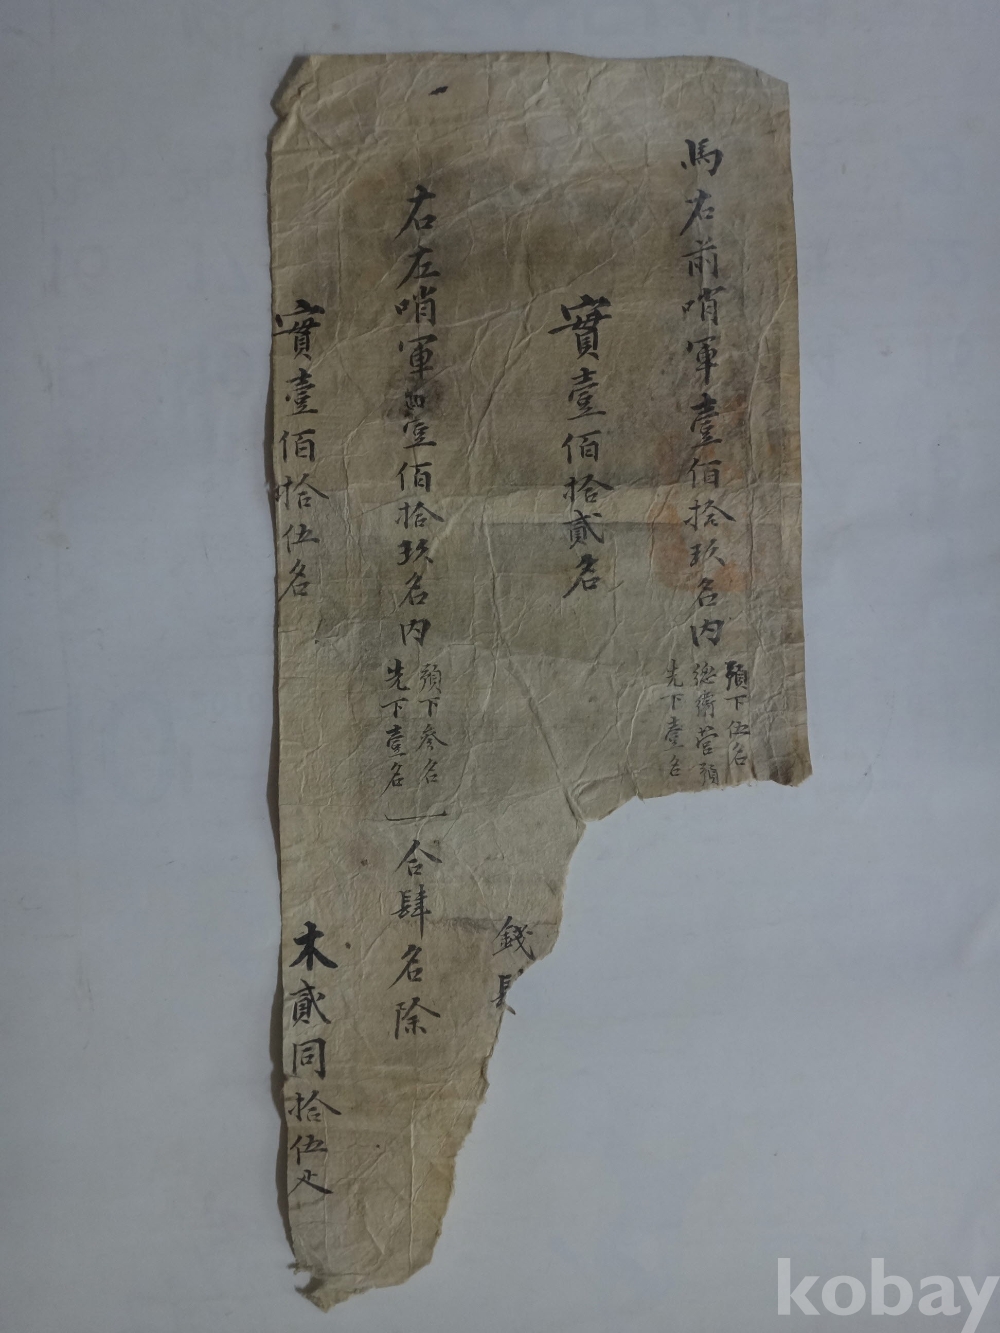 馬右前哨軍壹佰拾玖名內
頉下伍名
總衛營頉
先下壹名
實壹佰拾貳名
錢
右左哨軍四壹佰拾玖名內
頉下參名
先下壹名
合肆名除
實壹佰拾伍名
木貳同拾伍疋
kobay